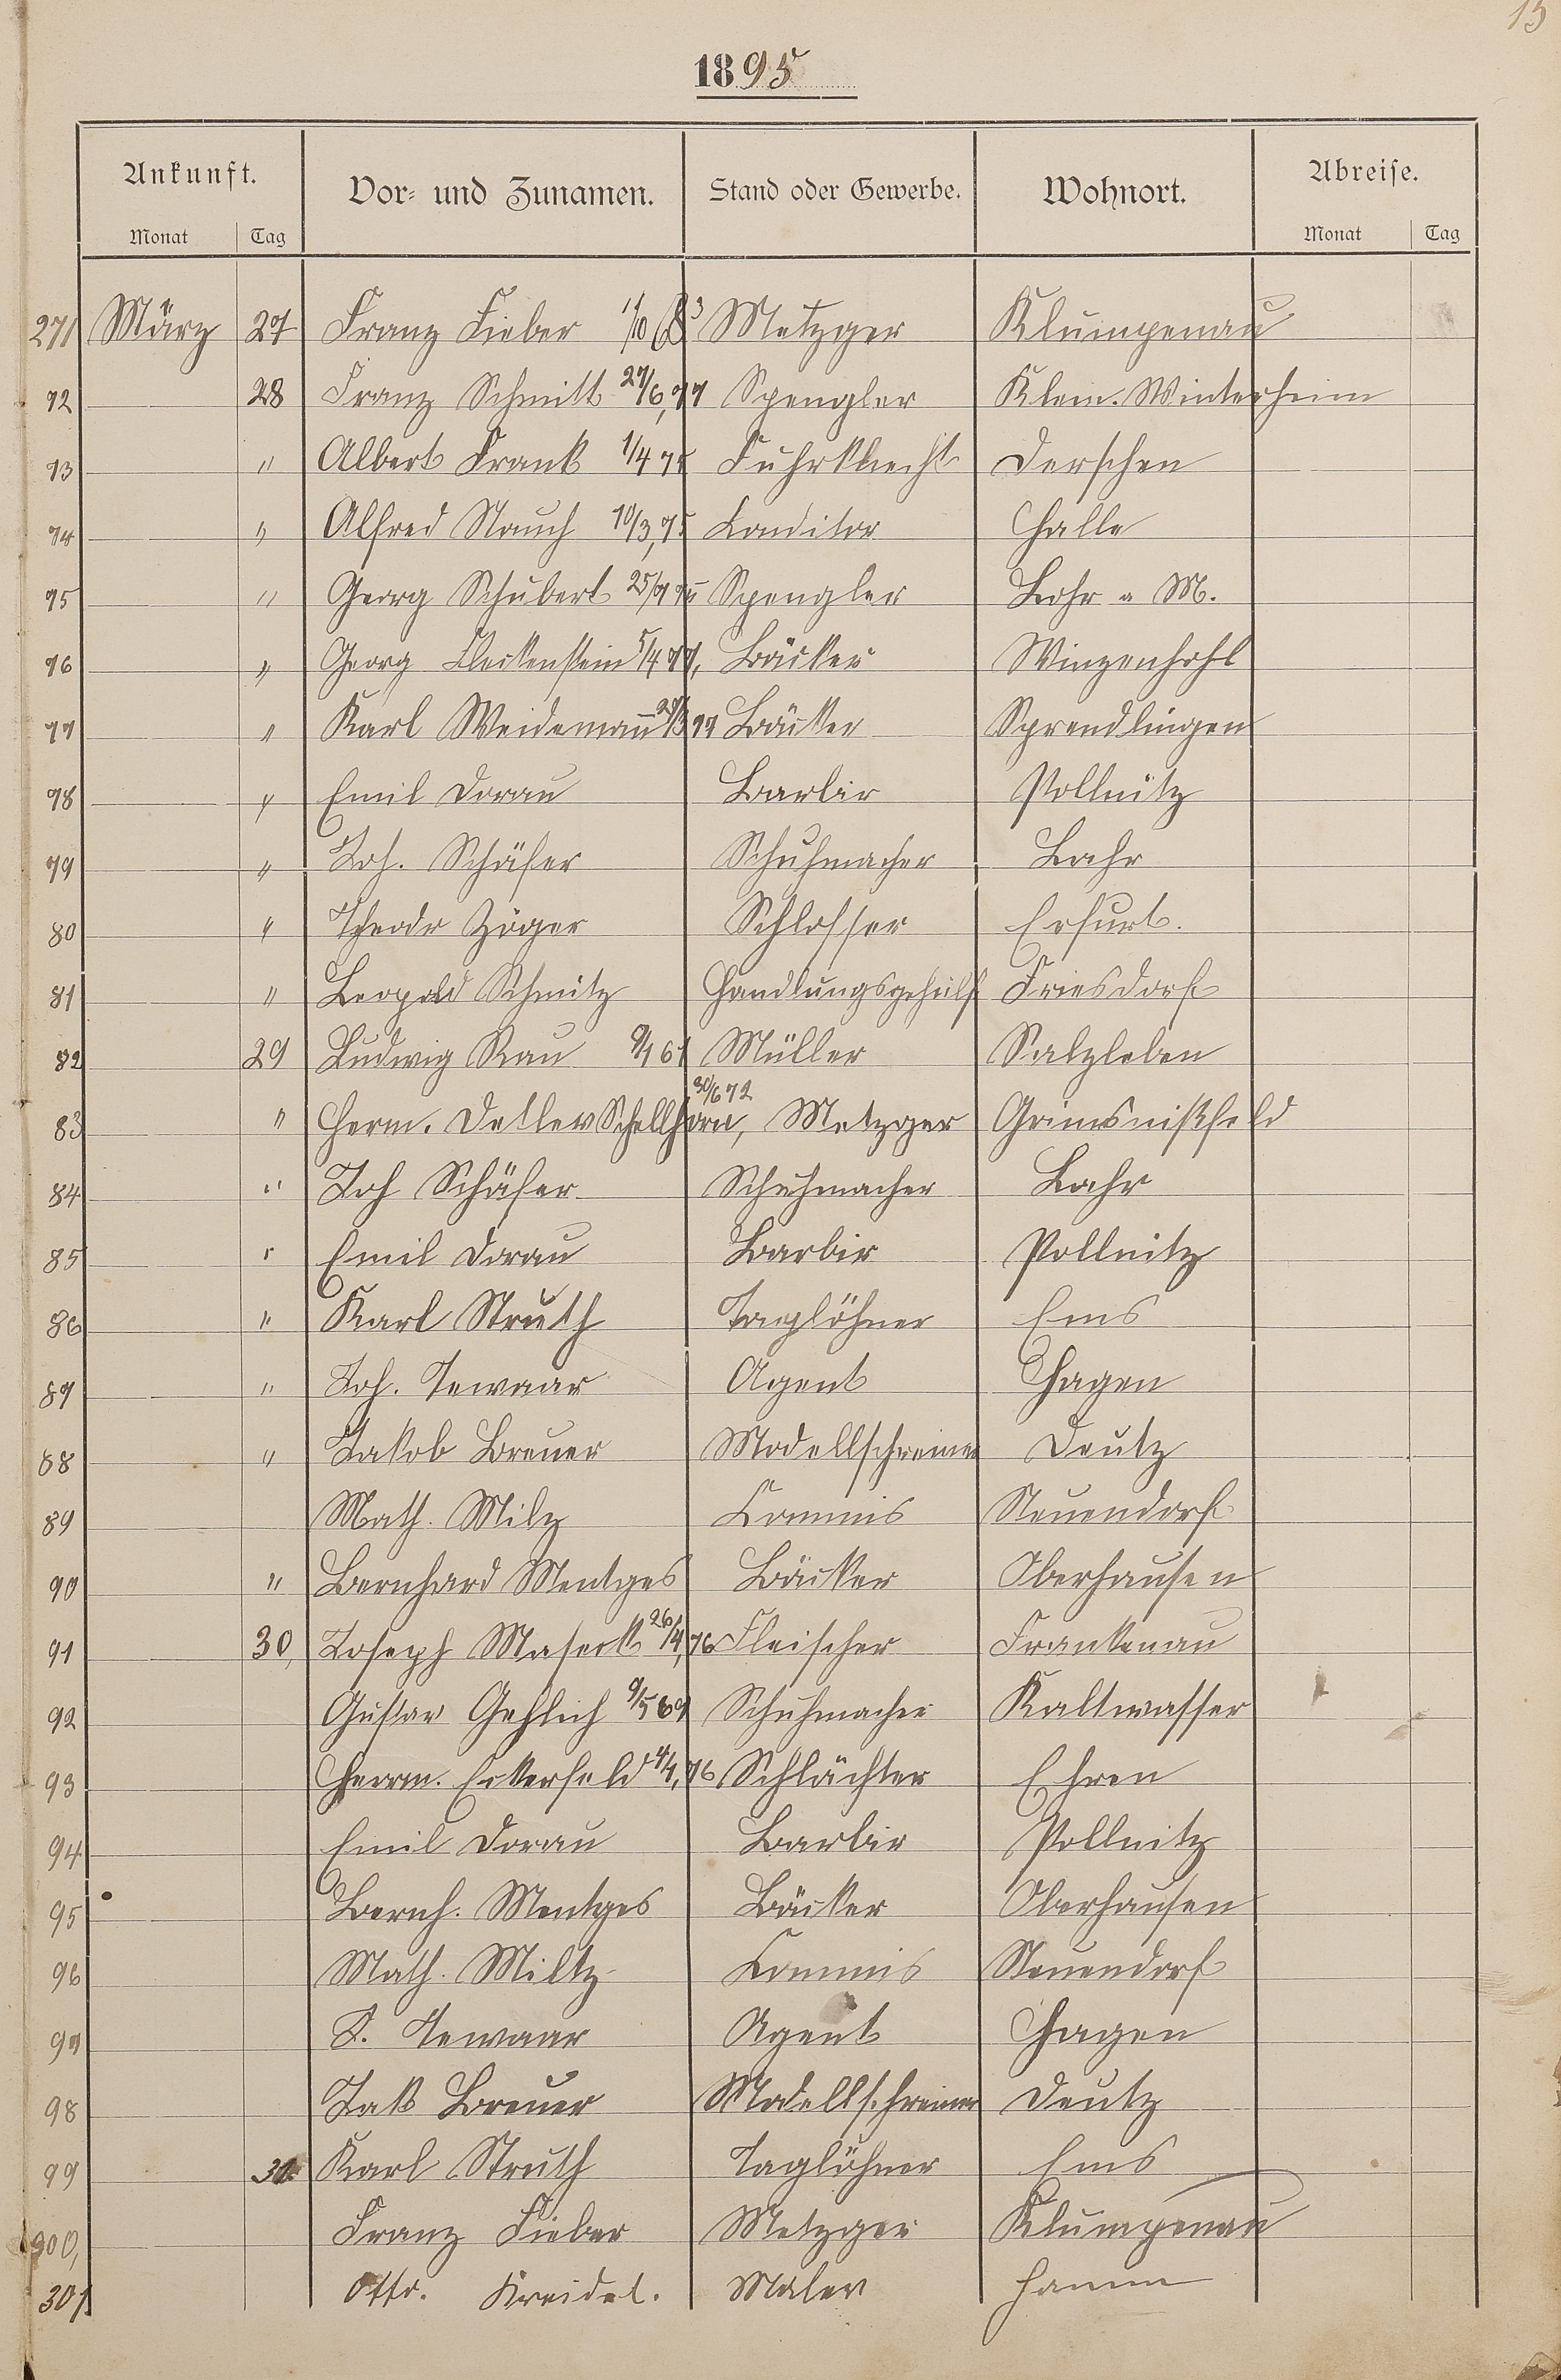 15
1895
Ankunft. Vor- und Zunamen. Stand oder Gewerbe. Wohnort. Abreise.
Monat Tag Monat Tag
271 März 27 Franz Fieber Metzger Klumpenau
72 28 Franz Schmitt 27/6,77 Spengler Klein. Winterheim
73 " Albert Frank 1/4 75 Fuhrknecht Derschen
74 " Alfred Rauch 10/3,75 Conditor Halle
75 " Georg Schubert Spengler Lohr a M.
76 " Georg Fleckenstein 5/4 77, Bäcker Winzenhohl
77 " Karl Weidemann Bäcker Sprendlingen
78 " Emil Dorau Barbir Pollnitz
79 " Joh. Schäfer Schuhmacher Lahr
80 " Theodr Zöger Schlosser Erfurt.
81 " Leopold Schmitz Handlungsgehülf Friesdorf
82 29 Ludwig Rau Müller Salzleben
83 " Herm. Detlev Schellhorn, 30/6 72 Metzger
84 " Joh Schäfer Schuhmacher Lahr
85 " Emil Dorau Barbir Pollnitz
86 " Karl Struth Taglöhner Ems
87 " Joh. Tewaar Agent Hagen
88 " Jakob Breuer Modellschreiner Deutz
89 Math. Milz Commis Neuendorf
90 " Bernhard Mentges Bäcker Oberhausen
91 30, Joseph 26/4,76 Fleischer Frankenau
92 Gustav Gehlich 9/5 69 Schuhmacher Kaltwasser
93 Herrm. Eckerfeld Schlächter Ehren
94 Emil Dorau Barbir Pollnitz
95 Bernh. Mentges Bäcker Oberhausen
96 Math. Miltz Commis Neuendorf
97 J. Tewaar Agent Hagen
98 Jak Breuer Modellschreiner Deutz
99 31 Karl Struth Taglöhner Ems
300, Franz Fieber Metzger Klumpenau
301 Otto. Kreidel. Maler Hamm